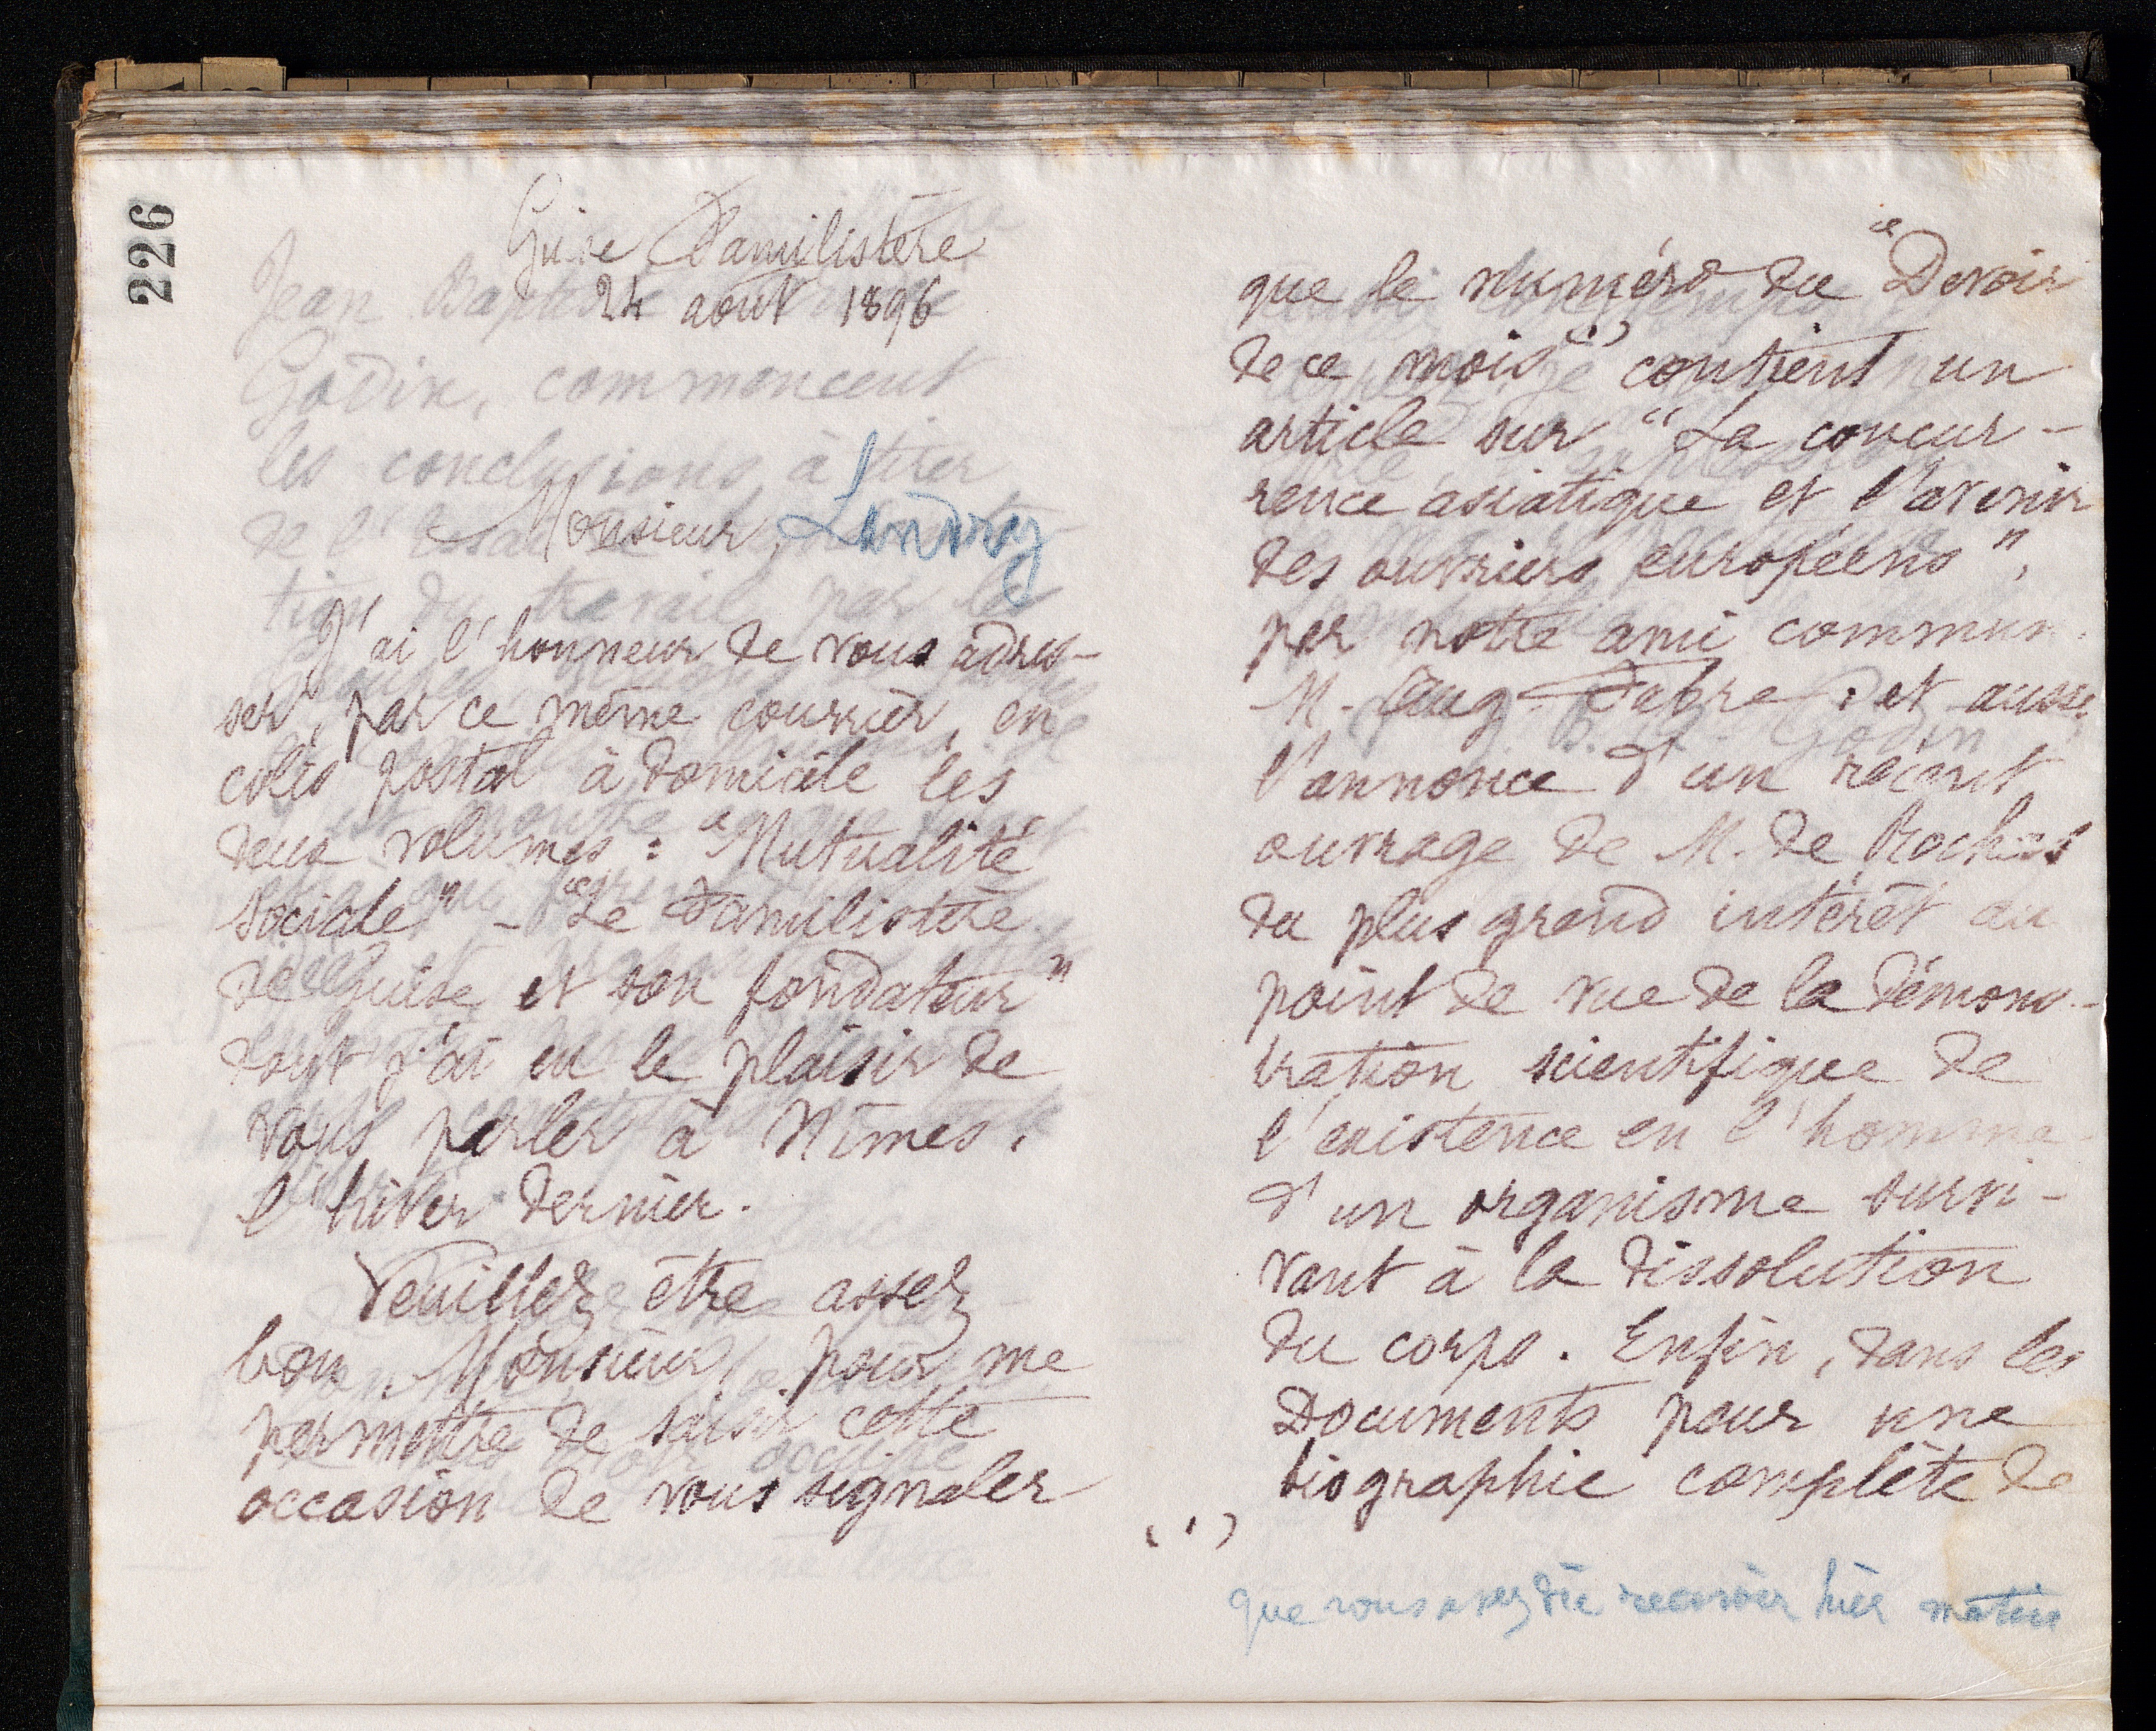 226
Guise Familistère
24 août 1896
Monsieur, Landroy
J'ai l'honneur de vous adres-
ser, par ce même courrier, en
colis postal à domicile les
deux volumes : "Mutualité
Sociale" - "Le Familistère
de Guise et son fondateur"
dont j'ai eu le plaisir de
vous parler à Nîmes,
l'hiver dernier.
Veuillez être assez
bon, Monsieur, pour me
permettre de saisir cette
occasion de vous signaler
que le numéro du "Devoir
de ce mois (1) contient un
article sur "La concur-
rence asiatique et l'avenir
des ouvriers européens",
par notre ami commun
M. Aug. Fabre ; et aussi
l'annonce d'un récent
ouvrage de M. de Rochas
du plus grand intérêt au
point de vue de la démons-
tration scientifique de
l'existence en l'homme
d'un organisme survi-
vant à la dissolution
du corps. Enfin, dans les
Documents pour une
biographie complète de
(1)
que vous avez dû recevoir hier matin